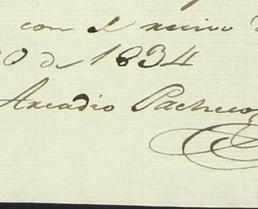 con el recivo
0 de 1834
Arcadio Pacheco